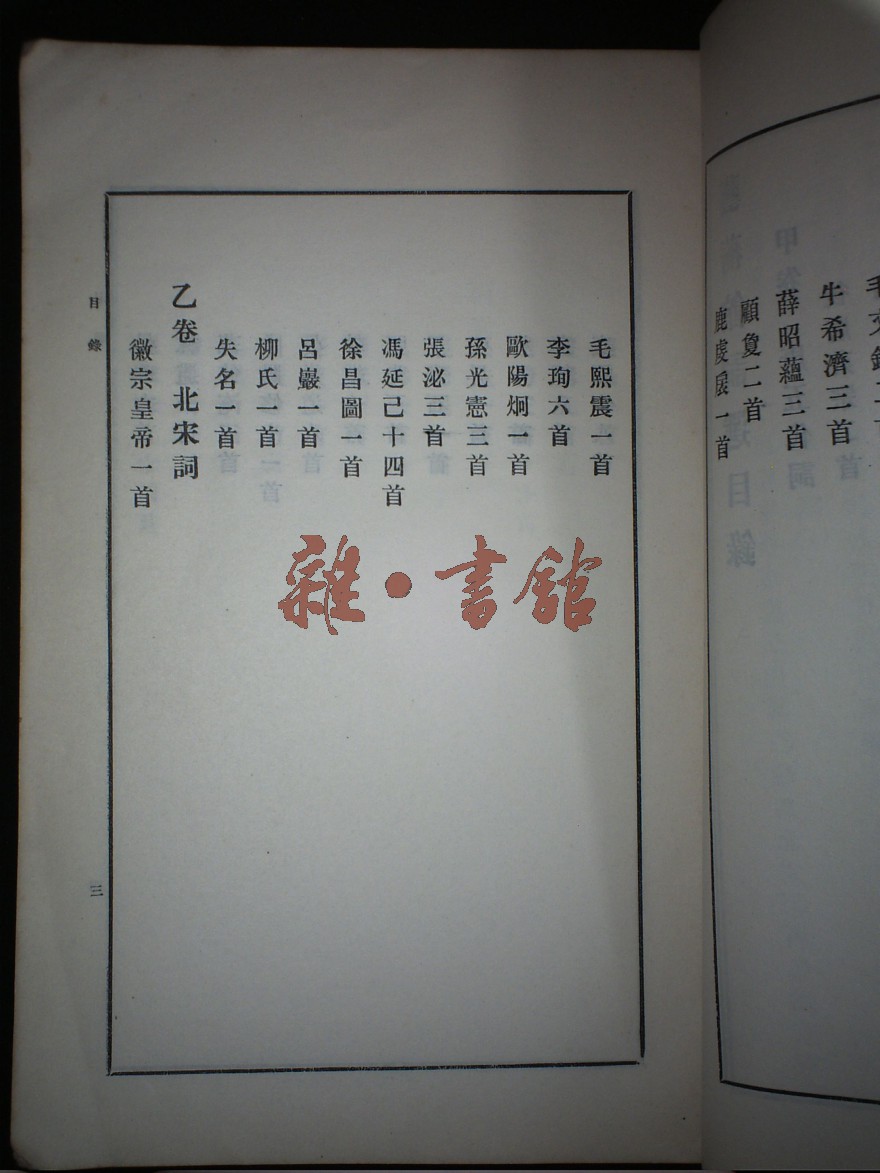 牛希濟三首
薛昭蘊三首
顧敻二首
鹿虔扆一首
毛熙震一首
李珣六首
歐陽炯一首
孫光憲三首
張泌三首
馮延己十四首
徐昌圖一首
呂巖一首
柳氏一首
失名一首
乙卷 北宋詞
徽宗皇帝一首
目錄
三
雜·書館